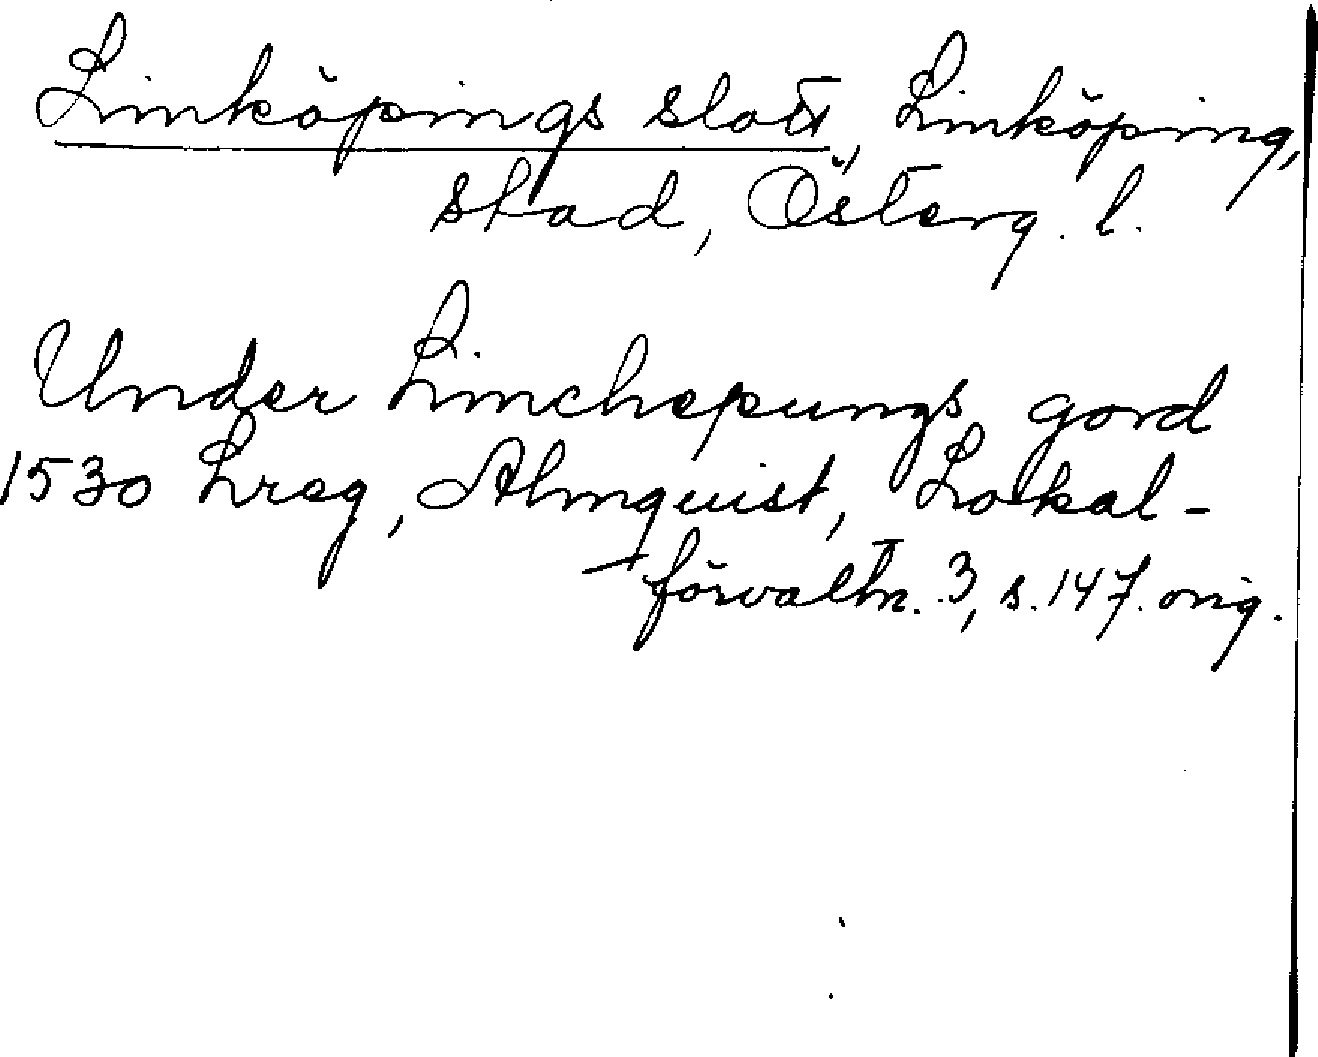 Linköpings slott, Linköping,
stad, Österg. l.
Under Linchepungs gord
1530 Lreg, Almquist, Lokal-
förvaltn. 3, s. 147. orig.